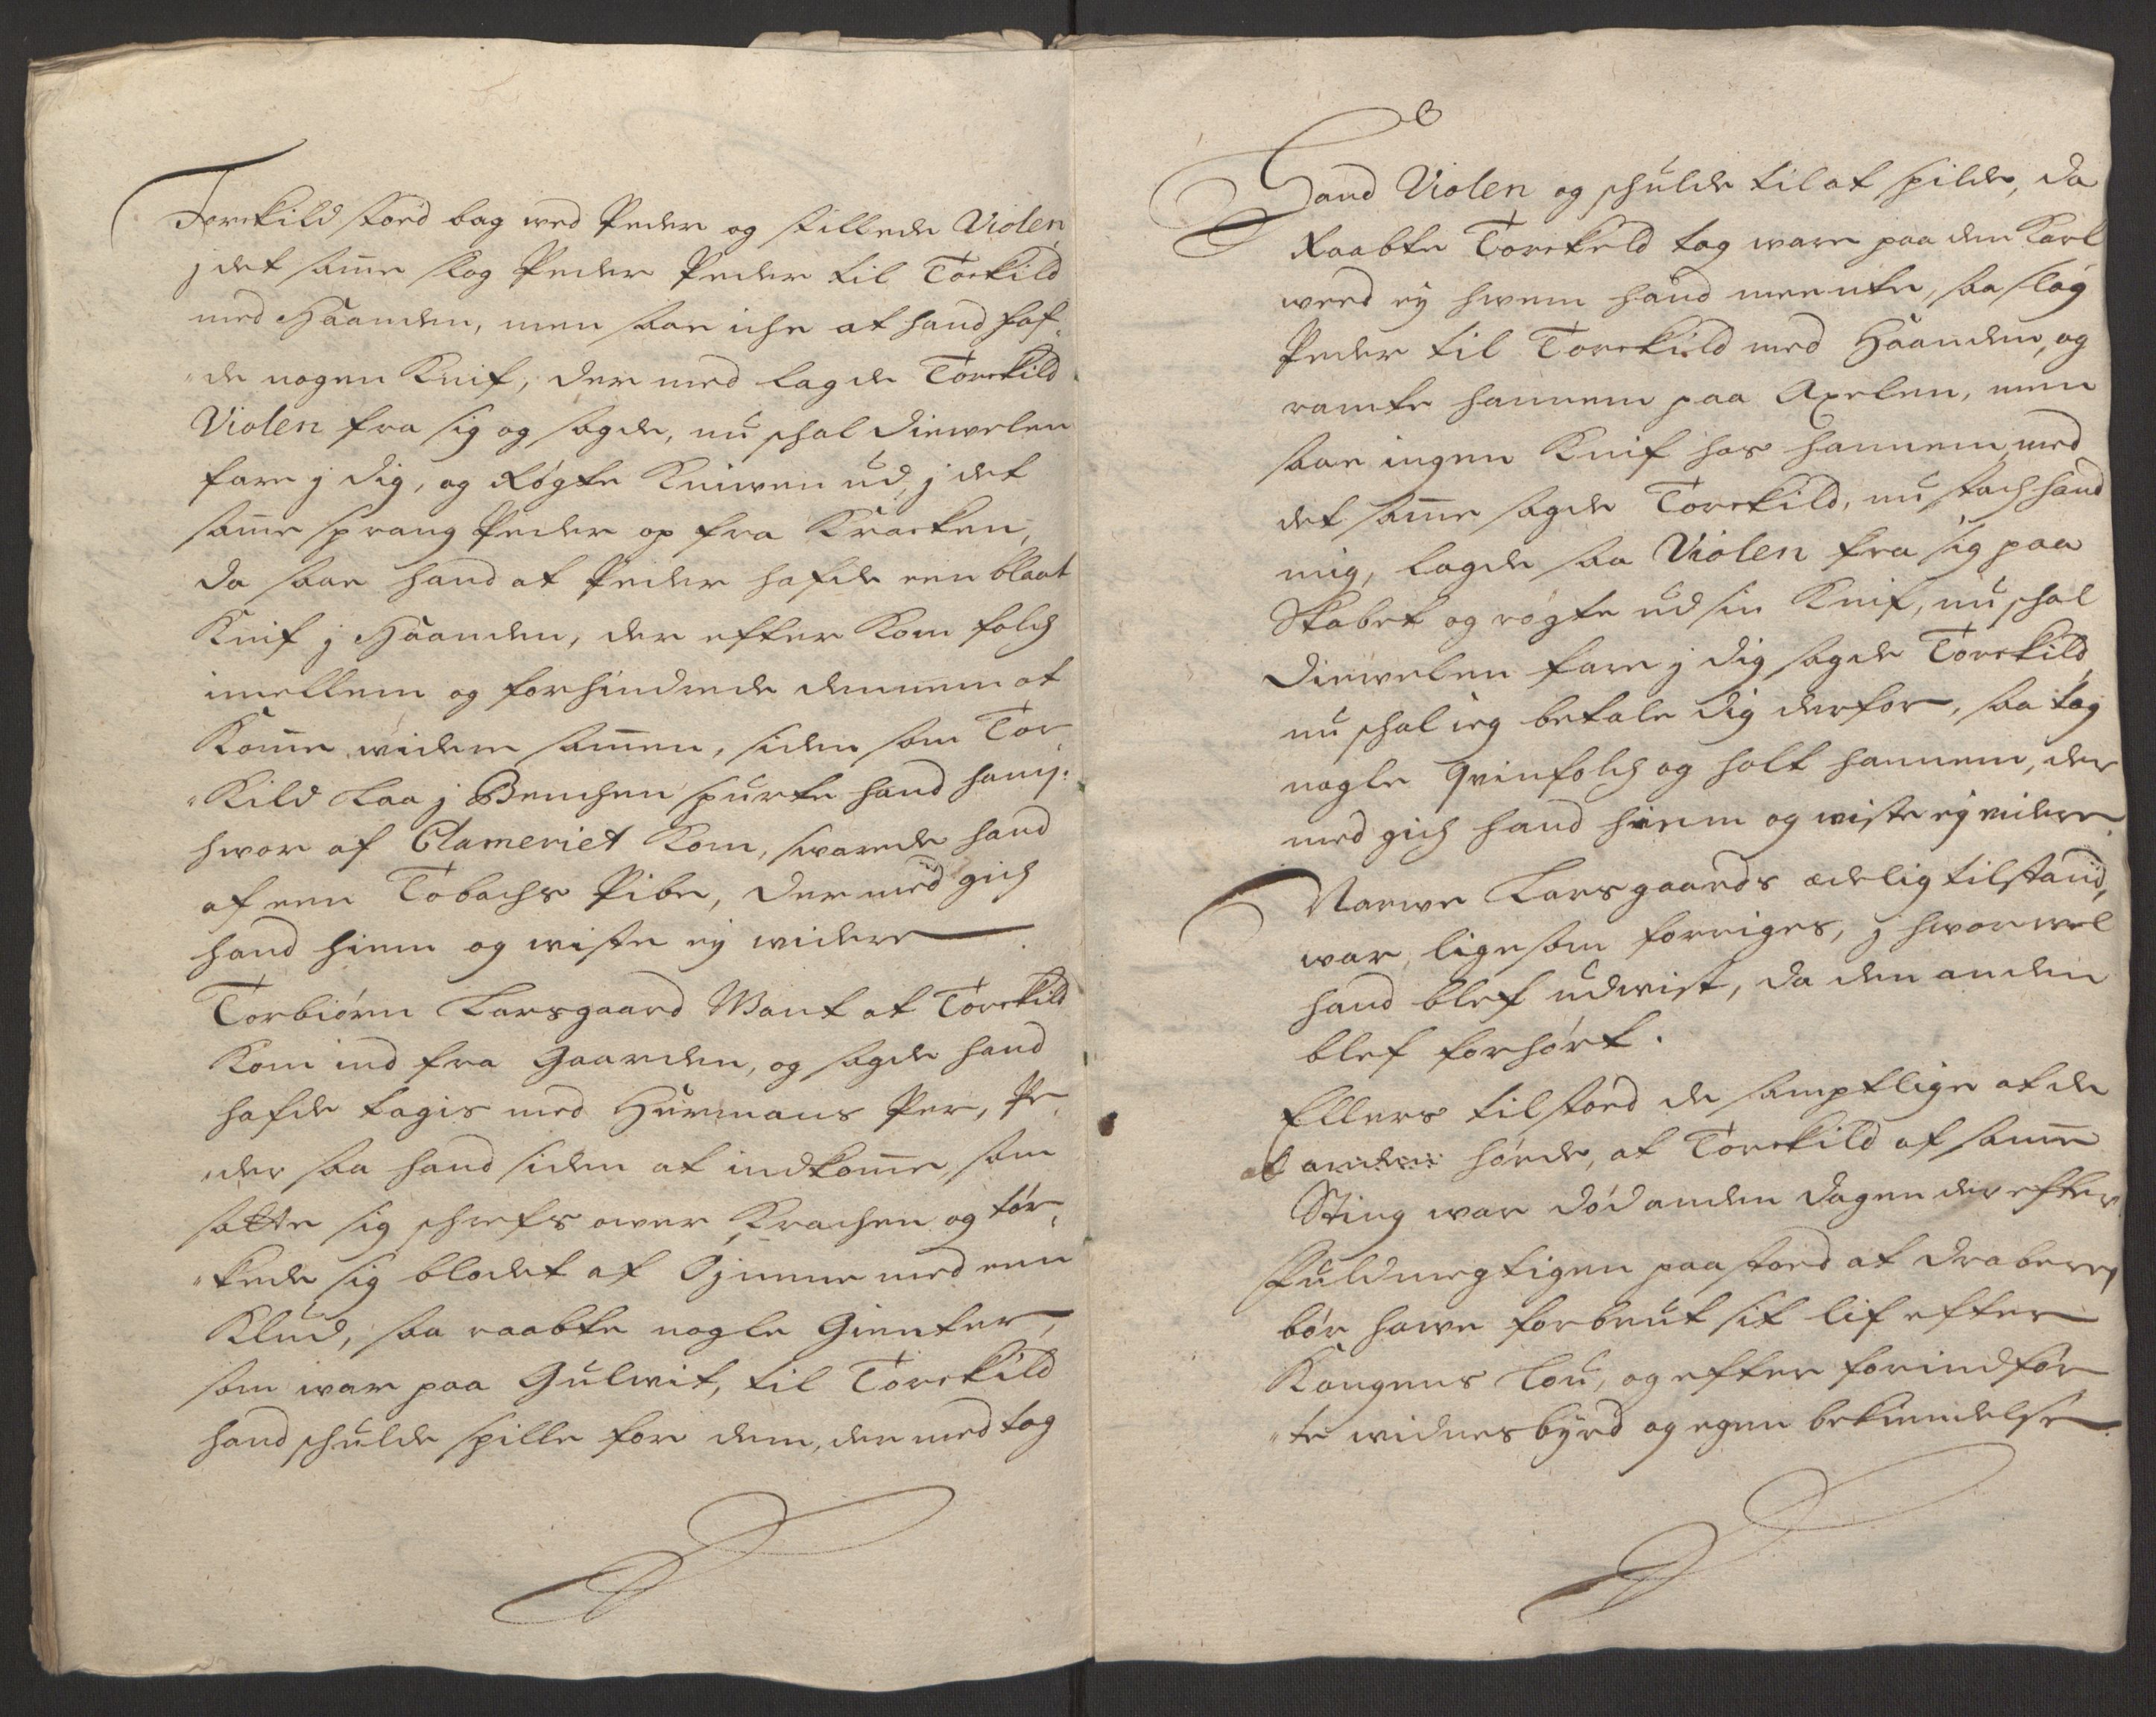 Torkild stoed bag wed Peder og stillede Violen,
j det same slog Peder Peder til Torkild
med Haanden, men saae iche at hand haf¬
„de nogen Knif, der med lagde Torekild
Violen fra sig og sagde, nu schal Diewelen
fare j dig, og Røgte Kniwen ud, j det
same sprang Peder op fra Kracken,
da saae hand at Peder hafde een blaat
Knif j Haanden, der efter Kom folch
imellem og forhindrede dennem at
Kome widere samen, siden som Tor¬
„Kild laa j Benchen spurte hand ham:
hwor af Clameriet Kom, swarede hand
af een Tobachs Pibe, der med gich
hand hiem og wiste ej widere
Torbiørn Larsgaard Want at Torekild
Kom ind fra Gaarden, og sagde hand
hafde tagis med Hurmans Per, Pe¬
„der saa hand siden at indkome, som
satte sig schrefs ower Krachen og tør¬
„kede sig blodet af Øjnene med een
Klud, saa raabte nogle Gienter,
som war paa Gulwit, til Torekild
hand schulde spille for dem, der med tog
Hand Violen og schulde til at spille, da
Raabte Torekeld tag ware paa den Karl
weed ej hwem hand meente, saa slog
Peder til Torekild med Haanden, og
ramte hannem paa Axelen, men
saae ingen Knif hos hannem, med
det same sagde Torekild, nu stach hand
mig, lagde saa Violen fra sig paa
Skabet og røgte ud sin Knif, nu schal
Diewelen fare j dig sagde Torekild,
nu schal ieg betale dig derfor, saa tog
nogle Qvinfolch og holt hannem, der
med gich hand hiem og wiste ej widere.
Narwe Larsgaards edelig tilstand,
war ligesom forriges, j hworwel
hand blef udwist, da den anden
blef forhørt.
Ellers tilstoed de samptlige at de
at anden hørde, at Torekild af same
Sting war død anden dagen der efter.
Fuldmegtigen paastoed at Draberen
bør hawe forbrut sit lif efter
Kongens Lou, og efter forindfør
„te widnesbyrd og egen bekiendelse.